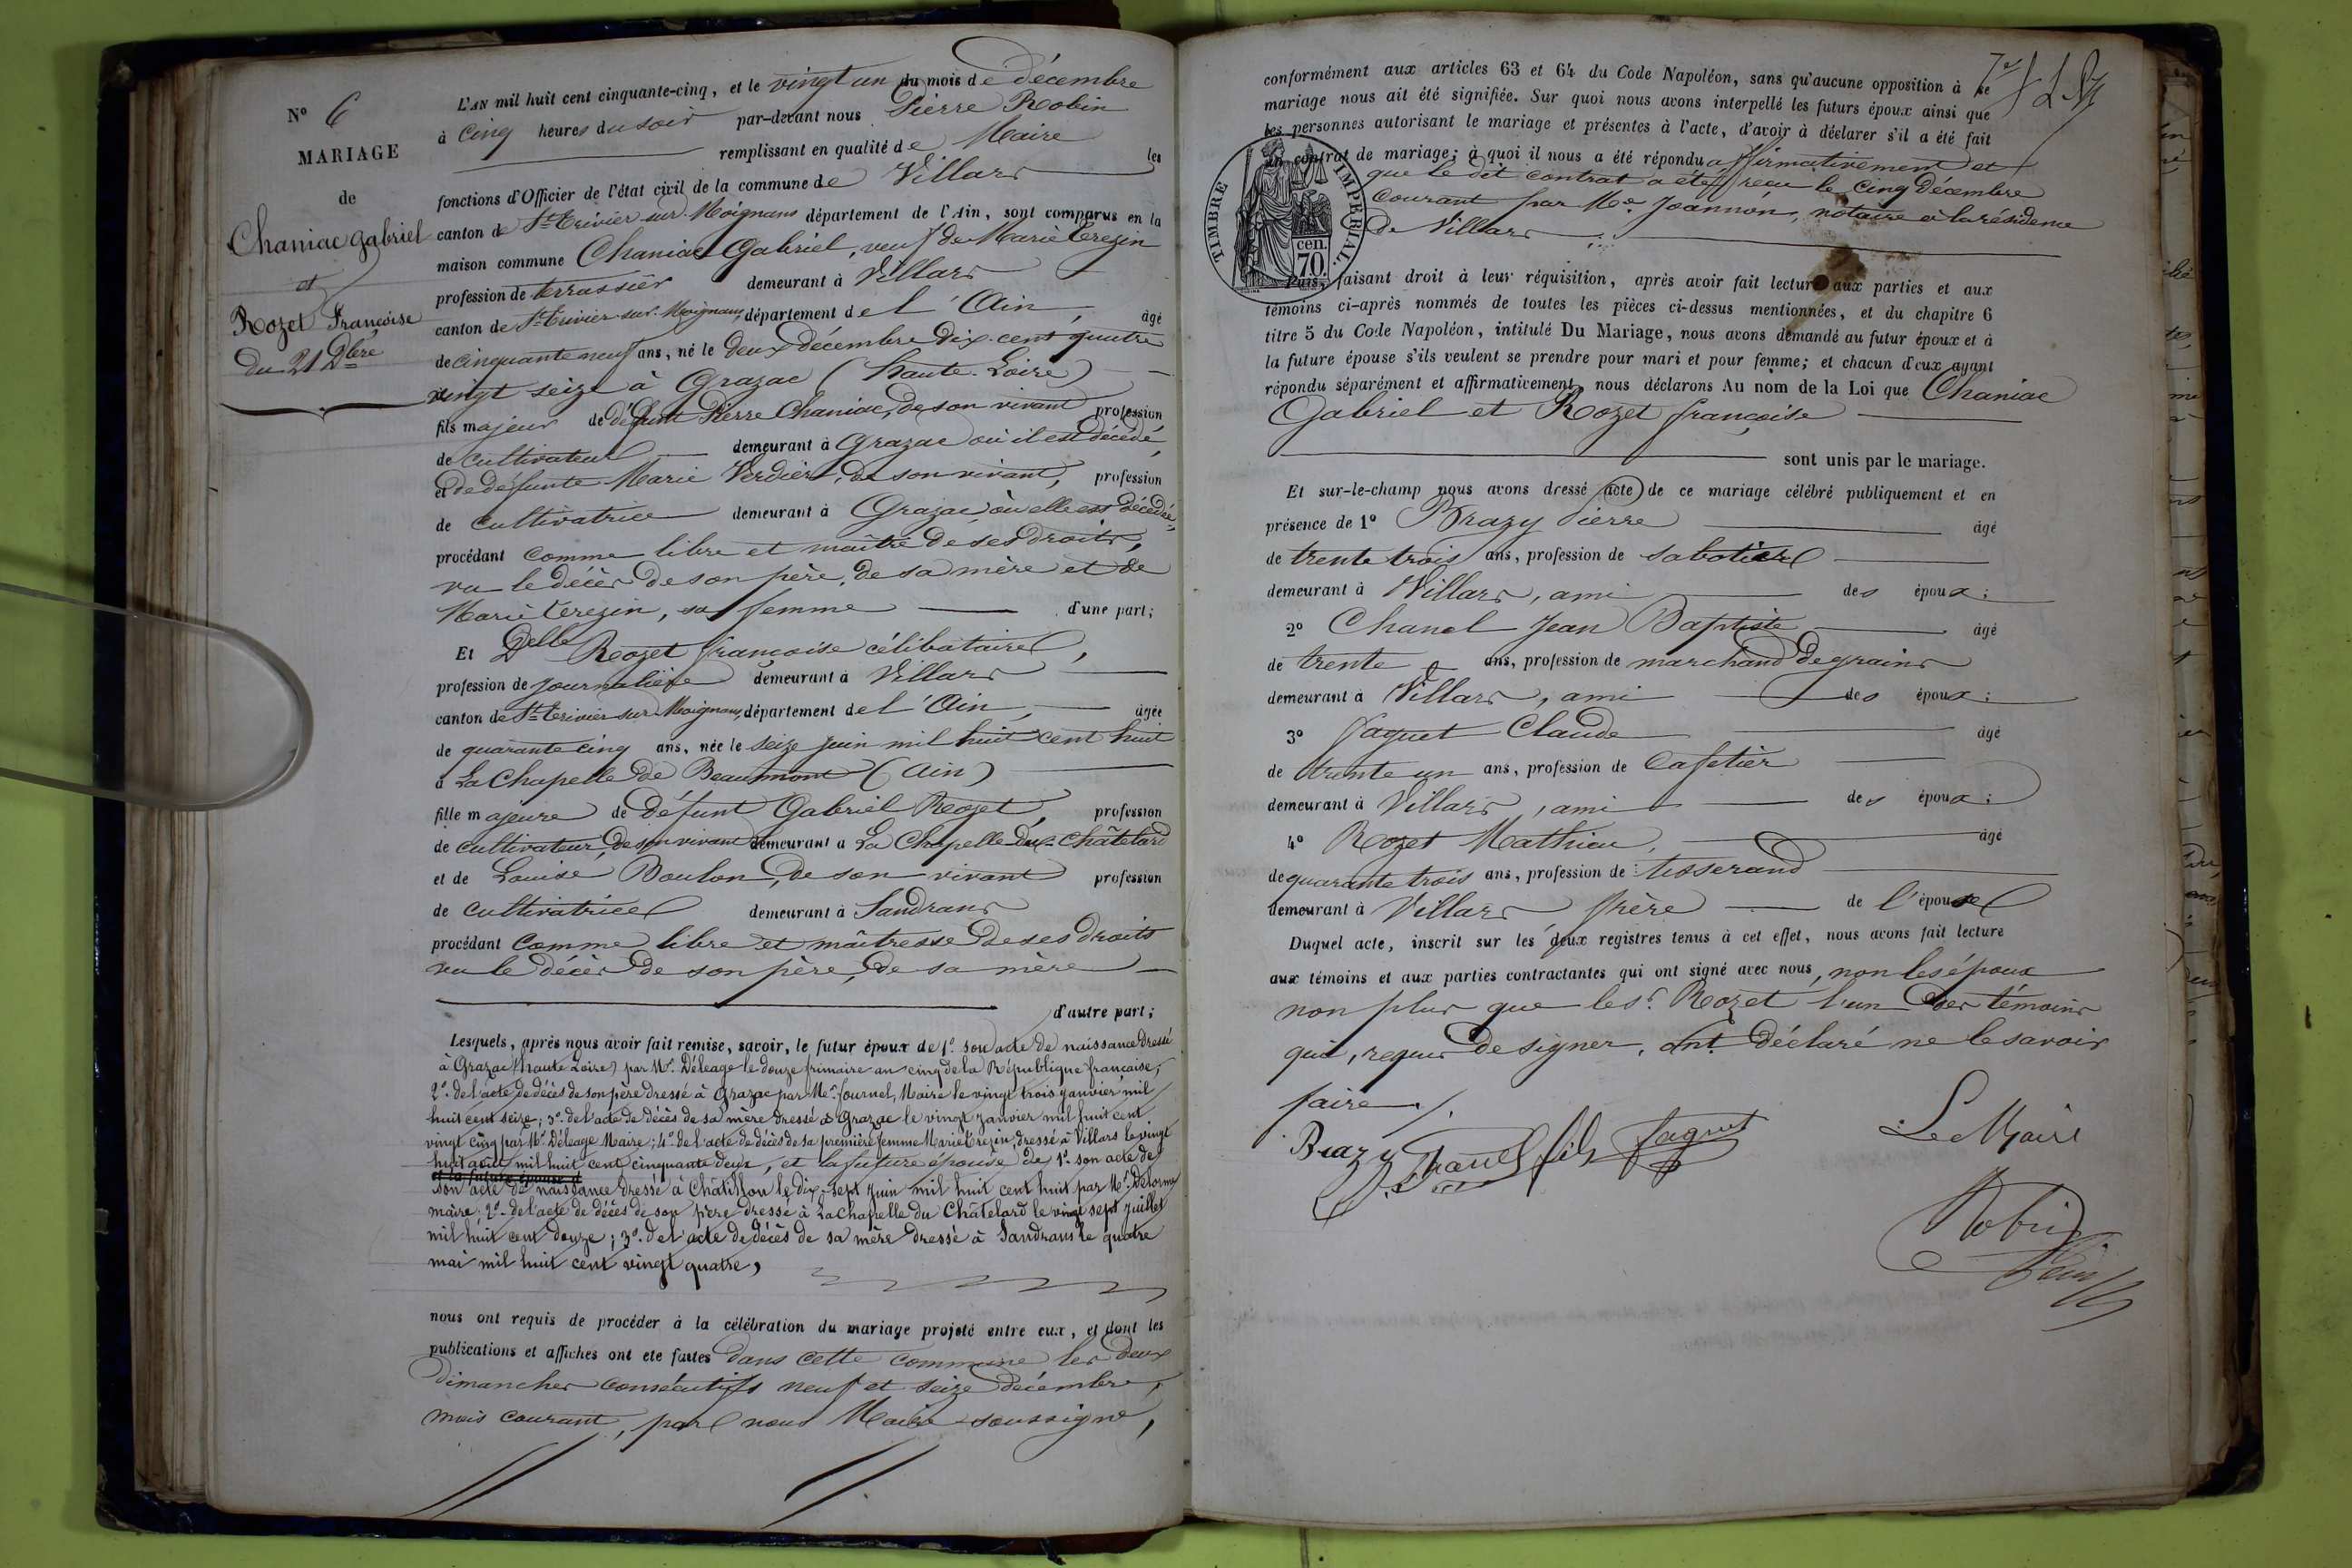 N° 6
MARIAGE
de
Chaniac Gabriel
et
Rozet Françoise
Du 21 Xbere
L'AN mil huit cent cinquante-cinq, et le vingt un du mois de décembre
à cinq heures du soir par-devant nous Pierre Robin
remplissant en qualité de Maire les
fonctions d'Officier de l'état civil de la commune de Villars
canton de St Trivier sur Moignans département de l'Ain, sont comparus en la
maison commune Chaniac Gabriel, veuf de Marie Terezin
profession de terrassier demeurant à Villars
canton de St Trivier-sur-Moignans, département de l'Ain, âgé
de cinquante neuf ans, né le deux décembre dix-cent quatre
vingt seize à Grazac (haute-Loire)
fils majeur de défunt Pierre Chaniac, de son vivant profession
de cultivateur demeurant à Grazac où il est décédé,
et de défunte Marie Verdier, de son vivant, profession
de cultivatrice demeurant à Grazac où elle est décédée,
procédant comme libre et maître de ses droits,
vu le décès de son père, de sa mère et de
Marie Terezin, sa femme d'une part;
Et Delle Rozet françoise célibataire,
profession de journalière demeurant à Villars
canton de St Trivier sur Moignans, département de l'Ain, âgée
de quarante cinq ans, née le seize juin mil huit cent huit
à La Chapelle de Beaumont (Ain)
fille majeure de défunt Gabriel Rozet, profession
de cultivateur, de son vivant demeurant à La Chapelle du Châtelard
et de Louise Boulon, de son vivant profession
de cultivatrice demeurant à Sandrans
procédant comme libre et maîtresse de ses droits
vu le décès de son père, de sa mère
d'autre part;
Lesquels, après nous avoir fait remise, savoir, le futur époux de 1° son acte de naissance dressé
à Grazac (haute Loire) par Mr Déléage le douze frimaire an cinq de la République française,
2° de l'acte de décès de son père dressé à Grazac par Me fournel, Maire le vingt trois janvier mil
huit cent seize; 3° de l'acte de décès de sa mère dressé à Grazac le vingt janvier mil huit cent
vingt cinq par Mr Déléage Maire; 4° de l'acte de décès de sa première femme Marie Terezin, dressé à Villars le vingt
huit août mil huit cent cinquante deux, et la future épouse de 1° son acte de
et la future épouse d
son acte de naissance dressé à Châtillon le dix-sept juin mil huit cent huit par Mr Delorme
maire; 2° de l'acte de décès de son père dressé à La Chapelle du Châtelard le vingt sept juillet
mil huit cent douze; 3° de l'acte de décès de sa mère dressé à Sandrans le quatre
mai mil huit cent vingt quatre,
nous ont requis de procéder à la célébration du mariage projeté entre eux, et dont les
publications et affiches ont été faites dans cette commune les deux
dimanches consécutifs neuf et seize décembre,
mois courant, par nous Maire soussigné,
conformément aux articles 63 et 64 du Code Napoléon, sans qu'aucune opposition à ce
mariage nous ait été signifiée. Sur quoi nous avons interpellé les futurs époux ainsi que
les personnes autorisant le mariage et présentes à l'acte, d'avoir à déclarer s'il a été fait
un contrat de mariage; à quoi il nous a été répondu affirmativement et
que le dit contrat a été reçu le cinq décembre
courant par Me Joannon, notaire à la résidence
de Villars
TIMBRE IMPÉRIAL.
cen.
70.
Puis, faisant droit à leur réquisition, après avoir fait lecture aux parties et aux
témoins ci-après nommés de toutes les pièces ci-dessus mentionnées, et du chapitre 6
titre 5 du Code Napoléon, intitulé Du Mariage, nous avons demandé au futur époux et à
la future épouse s'ils veulent se prendre pour mari et pour femme; et chacun d'eux ayant
répondu séparément et affirmativement, nous déclarons Au nom de la Loi que Chaniac
Gabriel et Rozet françoise
sont unis par le mariage.
Et sur-le-champ nous avons dressé acte de ce mariage célébré publiquement et en
présence de 1° Brazy Pierre âgé
de trente trois ans, profession de sabotier
demeurant à Villars, ami des époux;
2° Chanel Jean Baptiste âgé
de trente ans, profession de marchand de grains
demeurant à Villars, ami des époux;
3° Jaquet Claude âgé
de trente un ans, profession de Cafetier
demeurant à Villars, ami des époux;
4° Rozet Mathieu, âgé
de quarante trois ans, profession de tisserand
demeurant à Villars frère de l'épouse
Duquel acte, inscrit sur les deux registres tenus à cet effet, nous avons fait lecture
aux témoins et aux parties contractantes qui ont signé avec nous, non les époux
non plus que le sr Rozet l'un des témoins
qui, requis de signer, ont déclaré ne le savoir
faire ./.
Brazy Chanel fils Jaquet
Le Maire
Robin